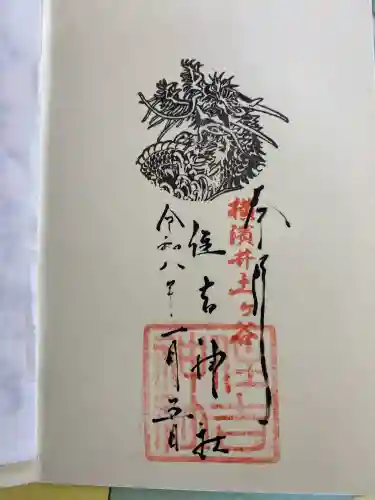 奉拝
横濱井土ヶ谷
住吉神社
令和八年一月五日
住吉神社